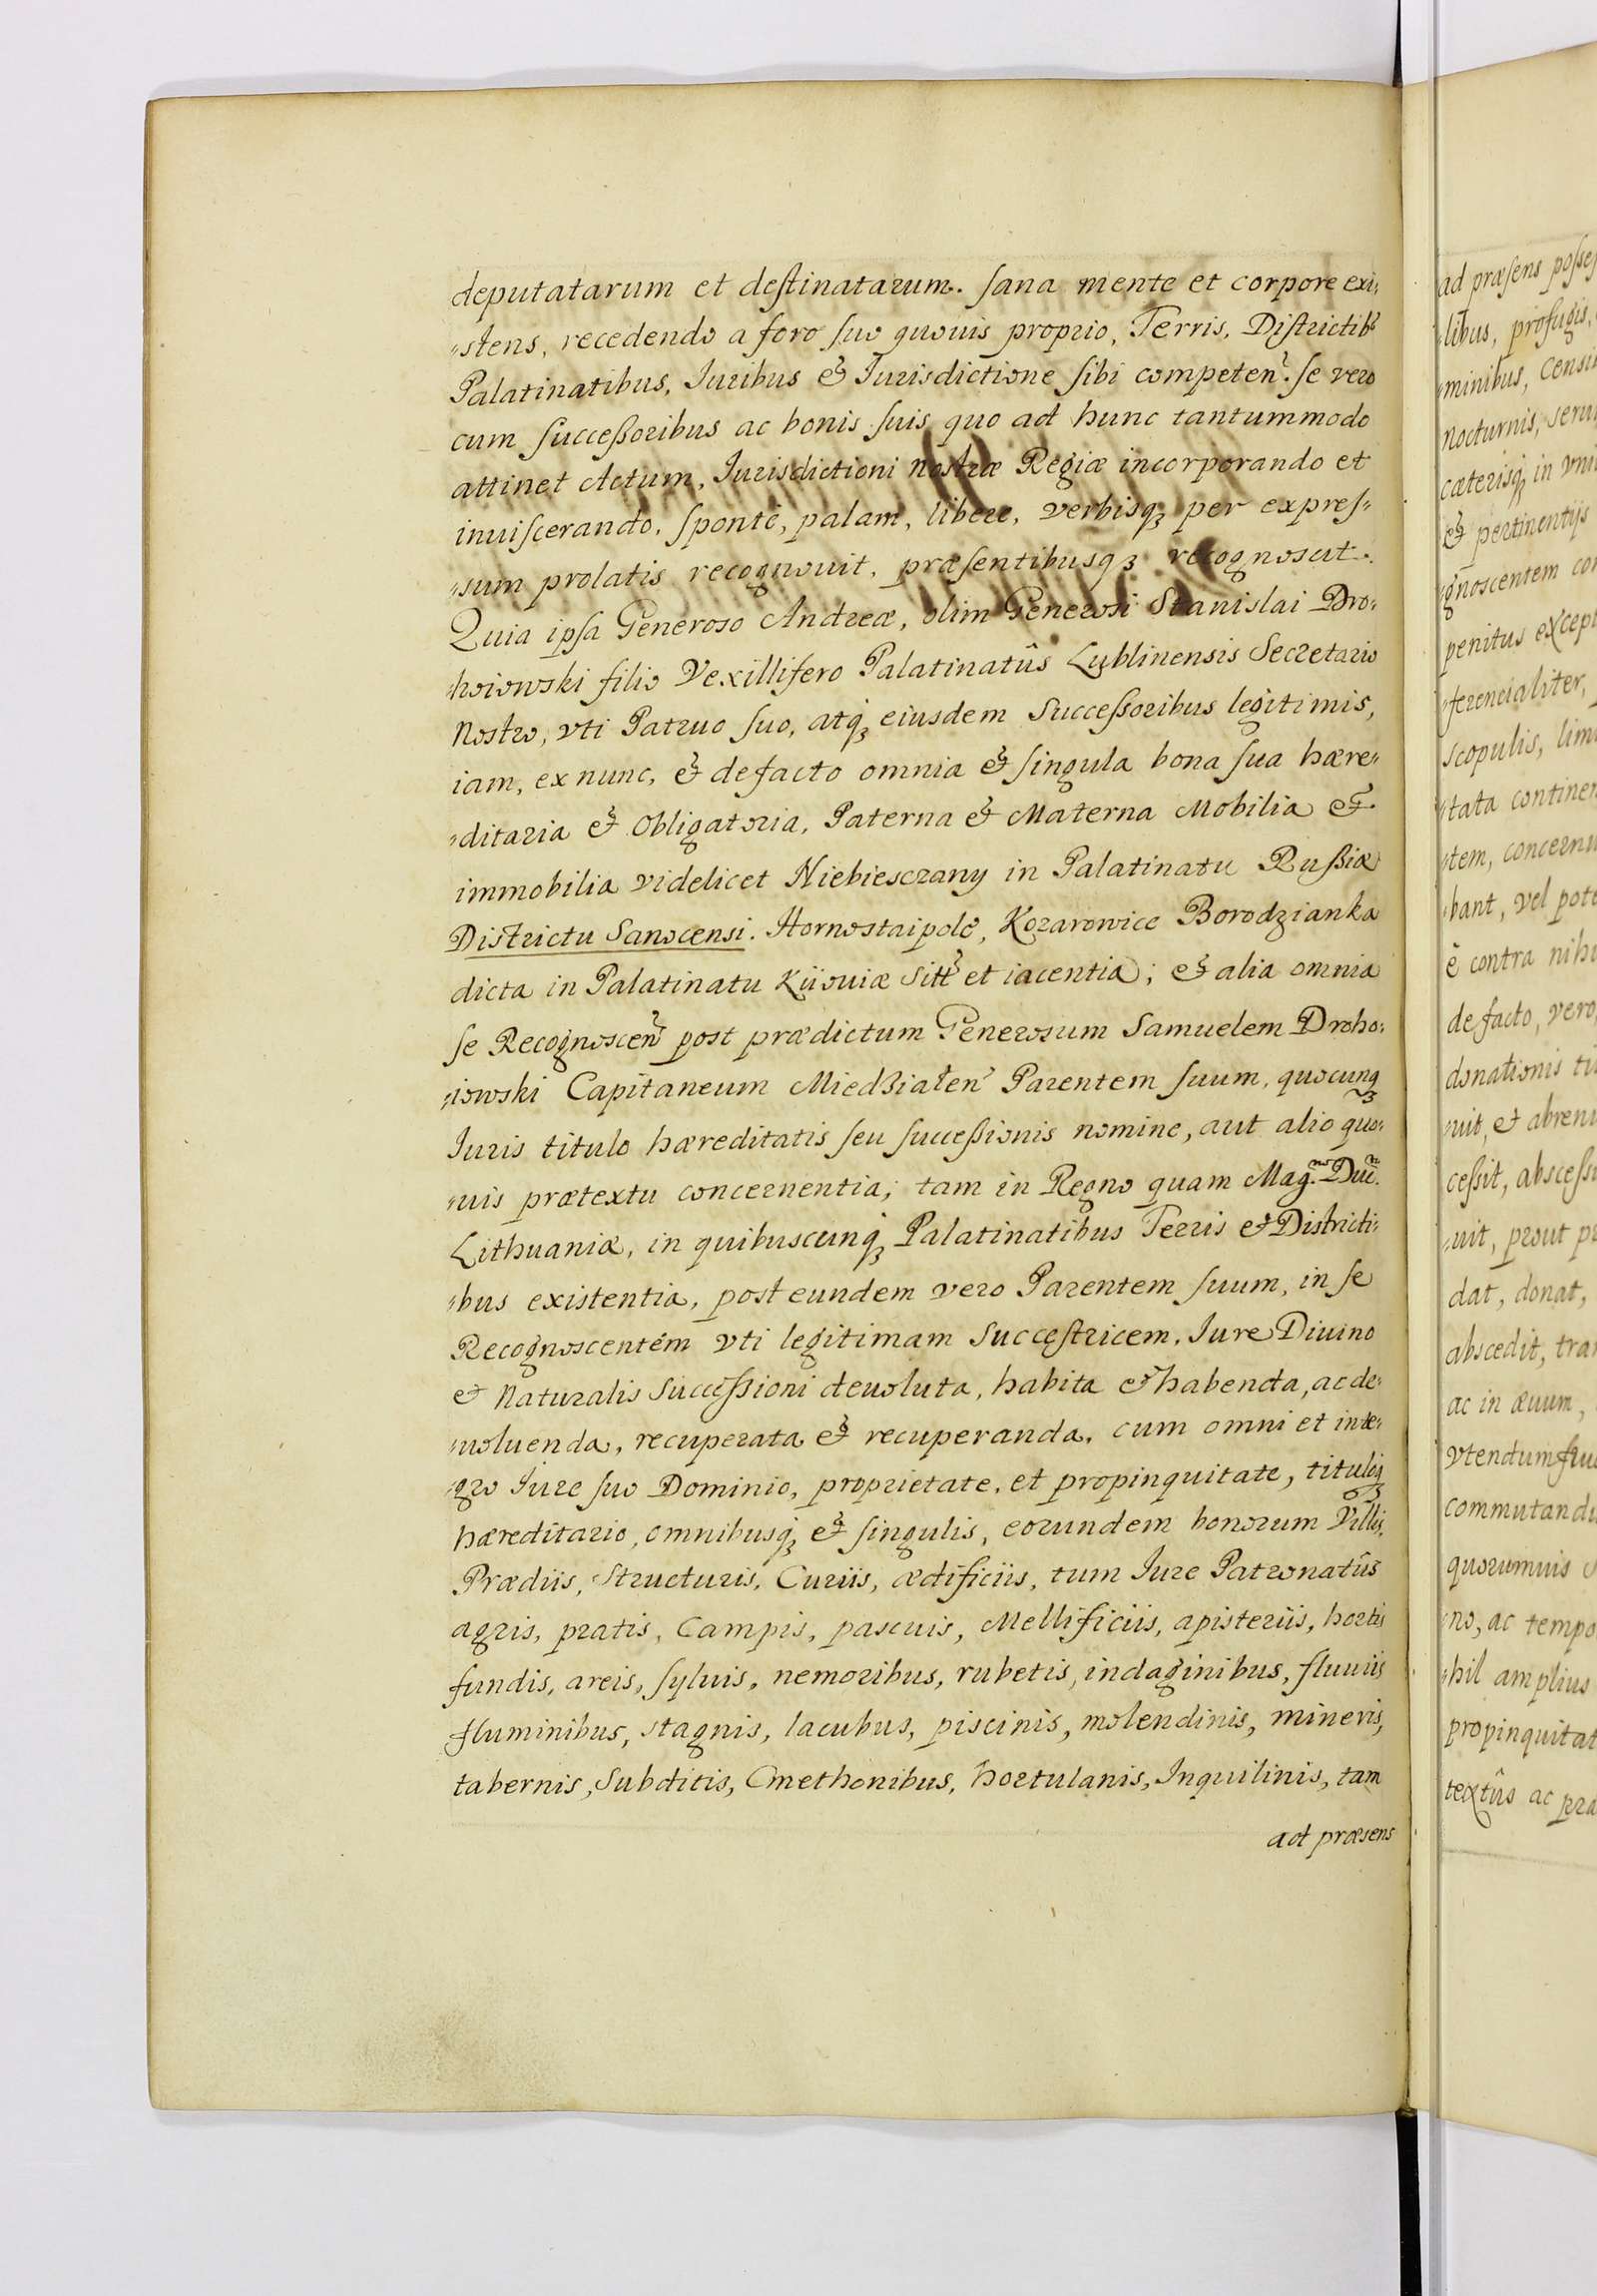 deputatarum et destinatarum. sana mente et corpore exi„
„stens, recedendo a foro suo quovis proprio, Terris, Districtib9
Palatinatibus, Iuribus & Iurisdictione sibi competen. se vero
cum successoribus ac bonis suis quo ad hunc tantummodo
attinet Actum, Iurisdictioni nostræ Regiæ incorporando et
inuiscerando, sponte, palam, libere, verbisqȝ per expres„
„sum prolatis recognouit, præsentibusqȝ recognoscit.
Quia ipsa Generoso Andreæ, olim Generosi Stanislai Dro„
„hoiowski filio Vexillifero Palatinatûs Lublinensis Secretario
Nostro, vti Patruo suo, atqȝ eiusdem Successoribus legitimis,
iam, ex nunc, & de facto omnia & singula bona sua hære„
„ditaria & Obligatoria, Paterna & Materna Mobilia &
immobilia videlicet Niebiesczany in Palatinatu Russiæ
Districtu Sanocensi. Hornostaipole, Kozarowice Borodzianka
dicta in Palatinatu Kiiouiæ Sitt et iacentia; & alia omnia
se Recognoscen post prædictum Generosum Samuelem Droho„
„iowski Capitaneum Miedßiałen Parentem suum, quocunqȝ
Iuris titulo hæreditatis seu successionis nomine, aut alio quo„
„uis prætextu concernentia; tam in Regno quam Mag.no Duc.
Lithuaniæ, in quibuscunqȝ Palatinatibus Terris & Districti„
„bus existentia, post eundem vero Parentem suum, in se
Recognoscentem vti legitimam Succestricem, Iure Diuino
& Naturalis Successioni deuoluta, habita & habenda, ac de„
„uoluenda, recuperata & recuperanda, cum omni et inte„
„gro Iure suo Dominio, proprietate, et propinquitate, tituloqȝ
hæreditario, omnibusqȝ & singulis, eorundem bonorum Villis,
Prædiis, Structuris, Curiis, ædificiis, tum Iure Patronatûs
agris, pratis, Campis, pascuis, Mellificiis, apisteriis, hortis
fundis, areis, syluis, nemoribus, rubetis, indaginibus, fluuiis
fluminibus, stagnis, lacubus, piscinis, molendinis, mineris,
tabernis, Subditis, Cmethonibus, Hortulanis, Inquilinis, tam
ad præsens
ad præsens posses
libus, profugis,
„minibus, Censi
nocturnis, serui
cæterisqȝ in vni
& pertinentijs
„gnoscentem co
penitus except
„ferencialiter,
scopulis, lim
„tata continen
„tem, concernu
„bant, vel pote
è contra nihi
de facto, vero
donationis ti
„uit, et abrenu
cessit, abscessi
„uit, prout p
dat, donat,
abscedit, tra
ac in æuum,
vtendum fru
commutandi
quorumuis
„no, ac tempo
„hil amplius
propinquitat
textûs ac præ